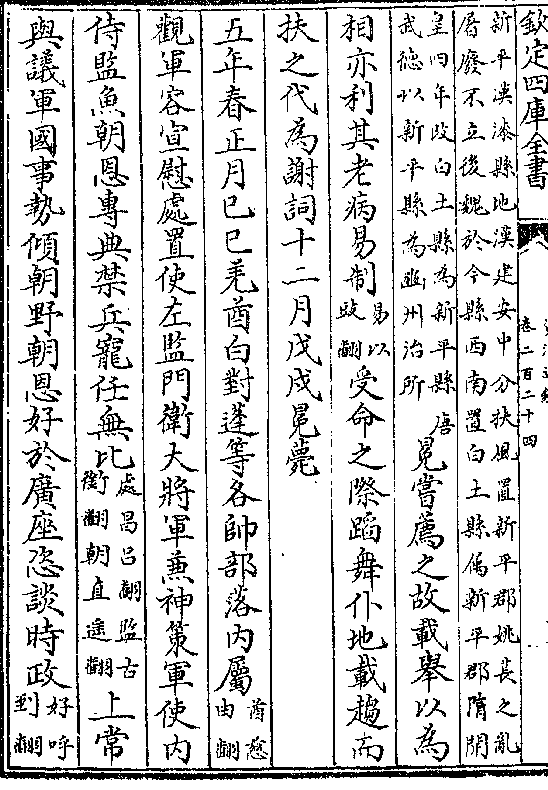 欽定四庫全書
卷二百二十四
新平漢漆縣地漢建安中分扶風置新平郡姚萇之亂
屠廢不立後魏於今縣西南置白土縣屬新平郡隋開
皇四年改白土縣為新平縣唐
武德以新平縣為豳州治所
冕嘗薦之故載舉以為
相亦利其老病易制易以豉翻受命之際蹈舞仆地載趨而
扶之代為謝詞十二月戊戌冕薨
五年春正月己巳羌酋白對蓬等各帥部落内屬酋慈由翻
觀軍容宣慰處置使左監門衛大將軍兼神策軍使内
侍監魚朝恩專典禁兵寵任無比處昌吕翻監古銜翻朝直遥翻上常
與議軍國事勢傾朝野朝恩好於廣座恣談時政好呼到翻